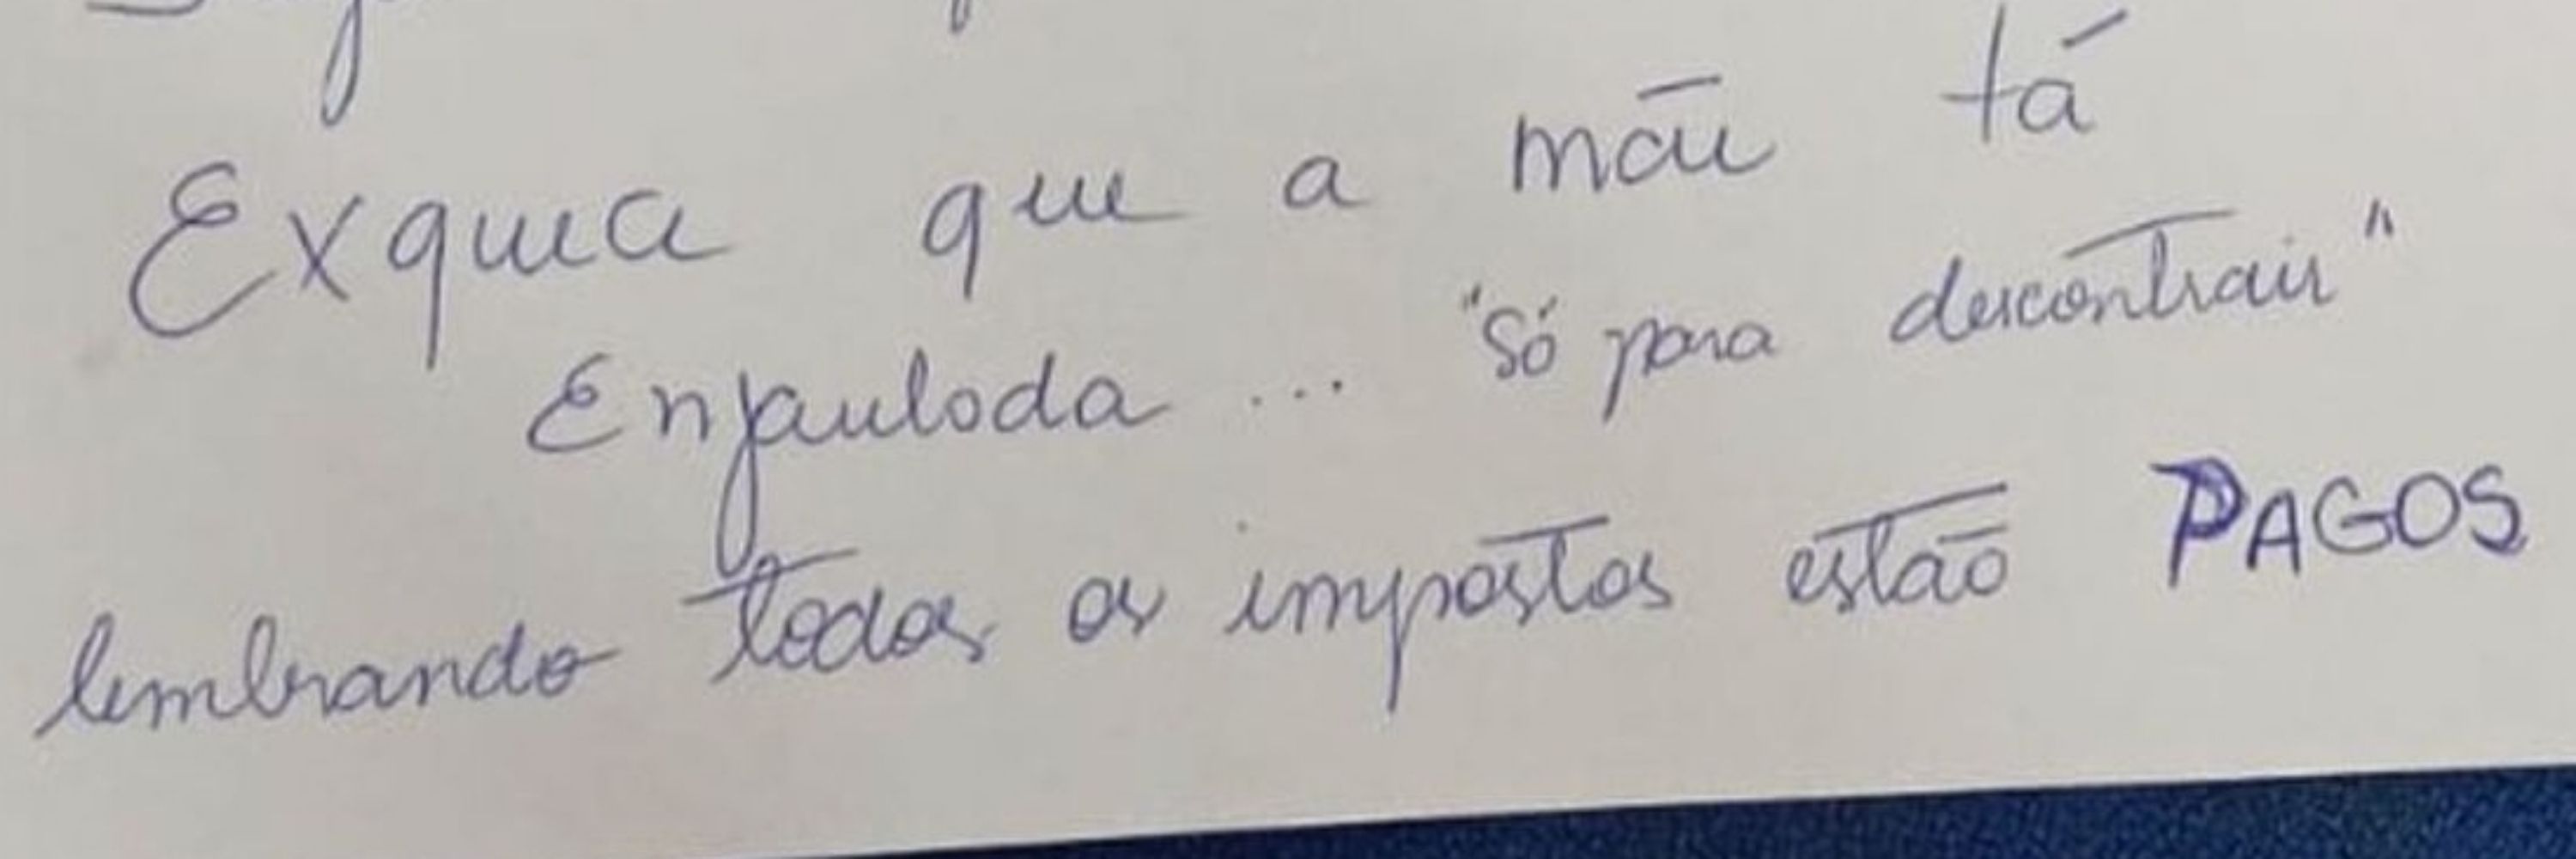 Exquea que a mãe tá
Enjaulada ... "Só para descontrair"
lembrando todos os impostos estão PAGOS